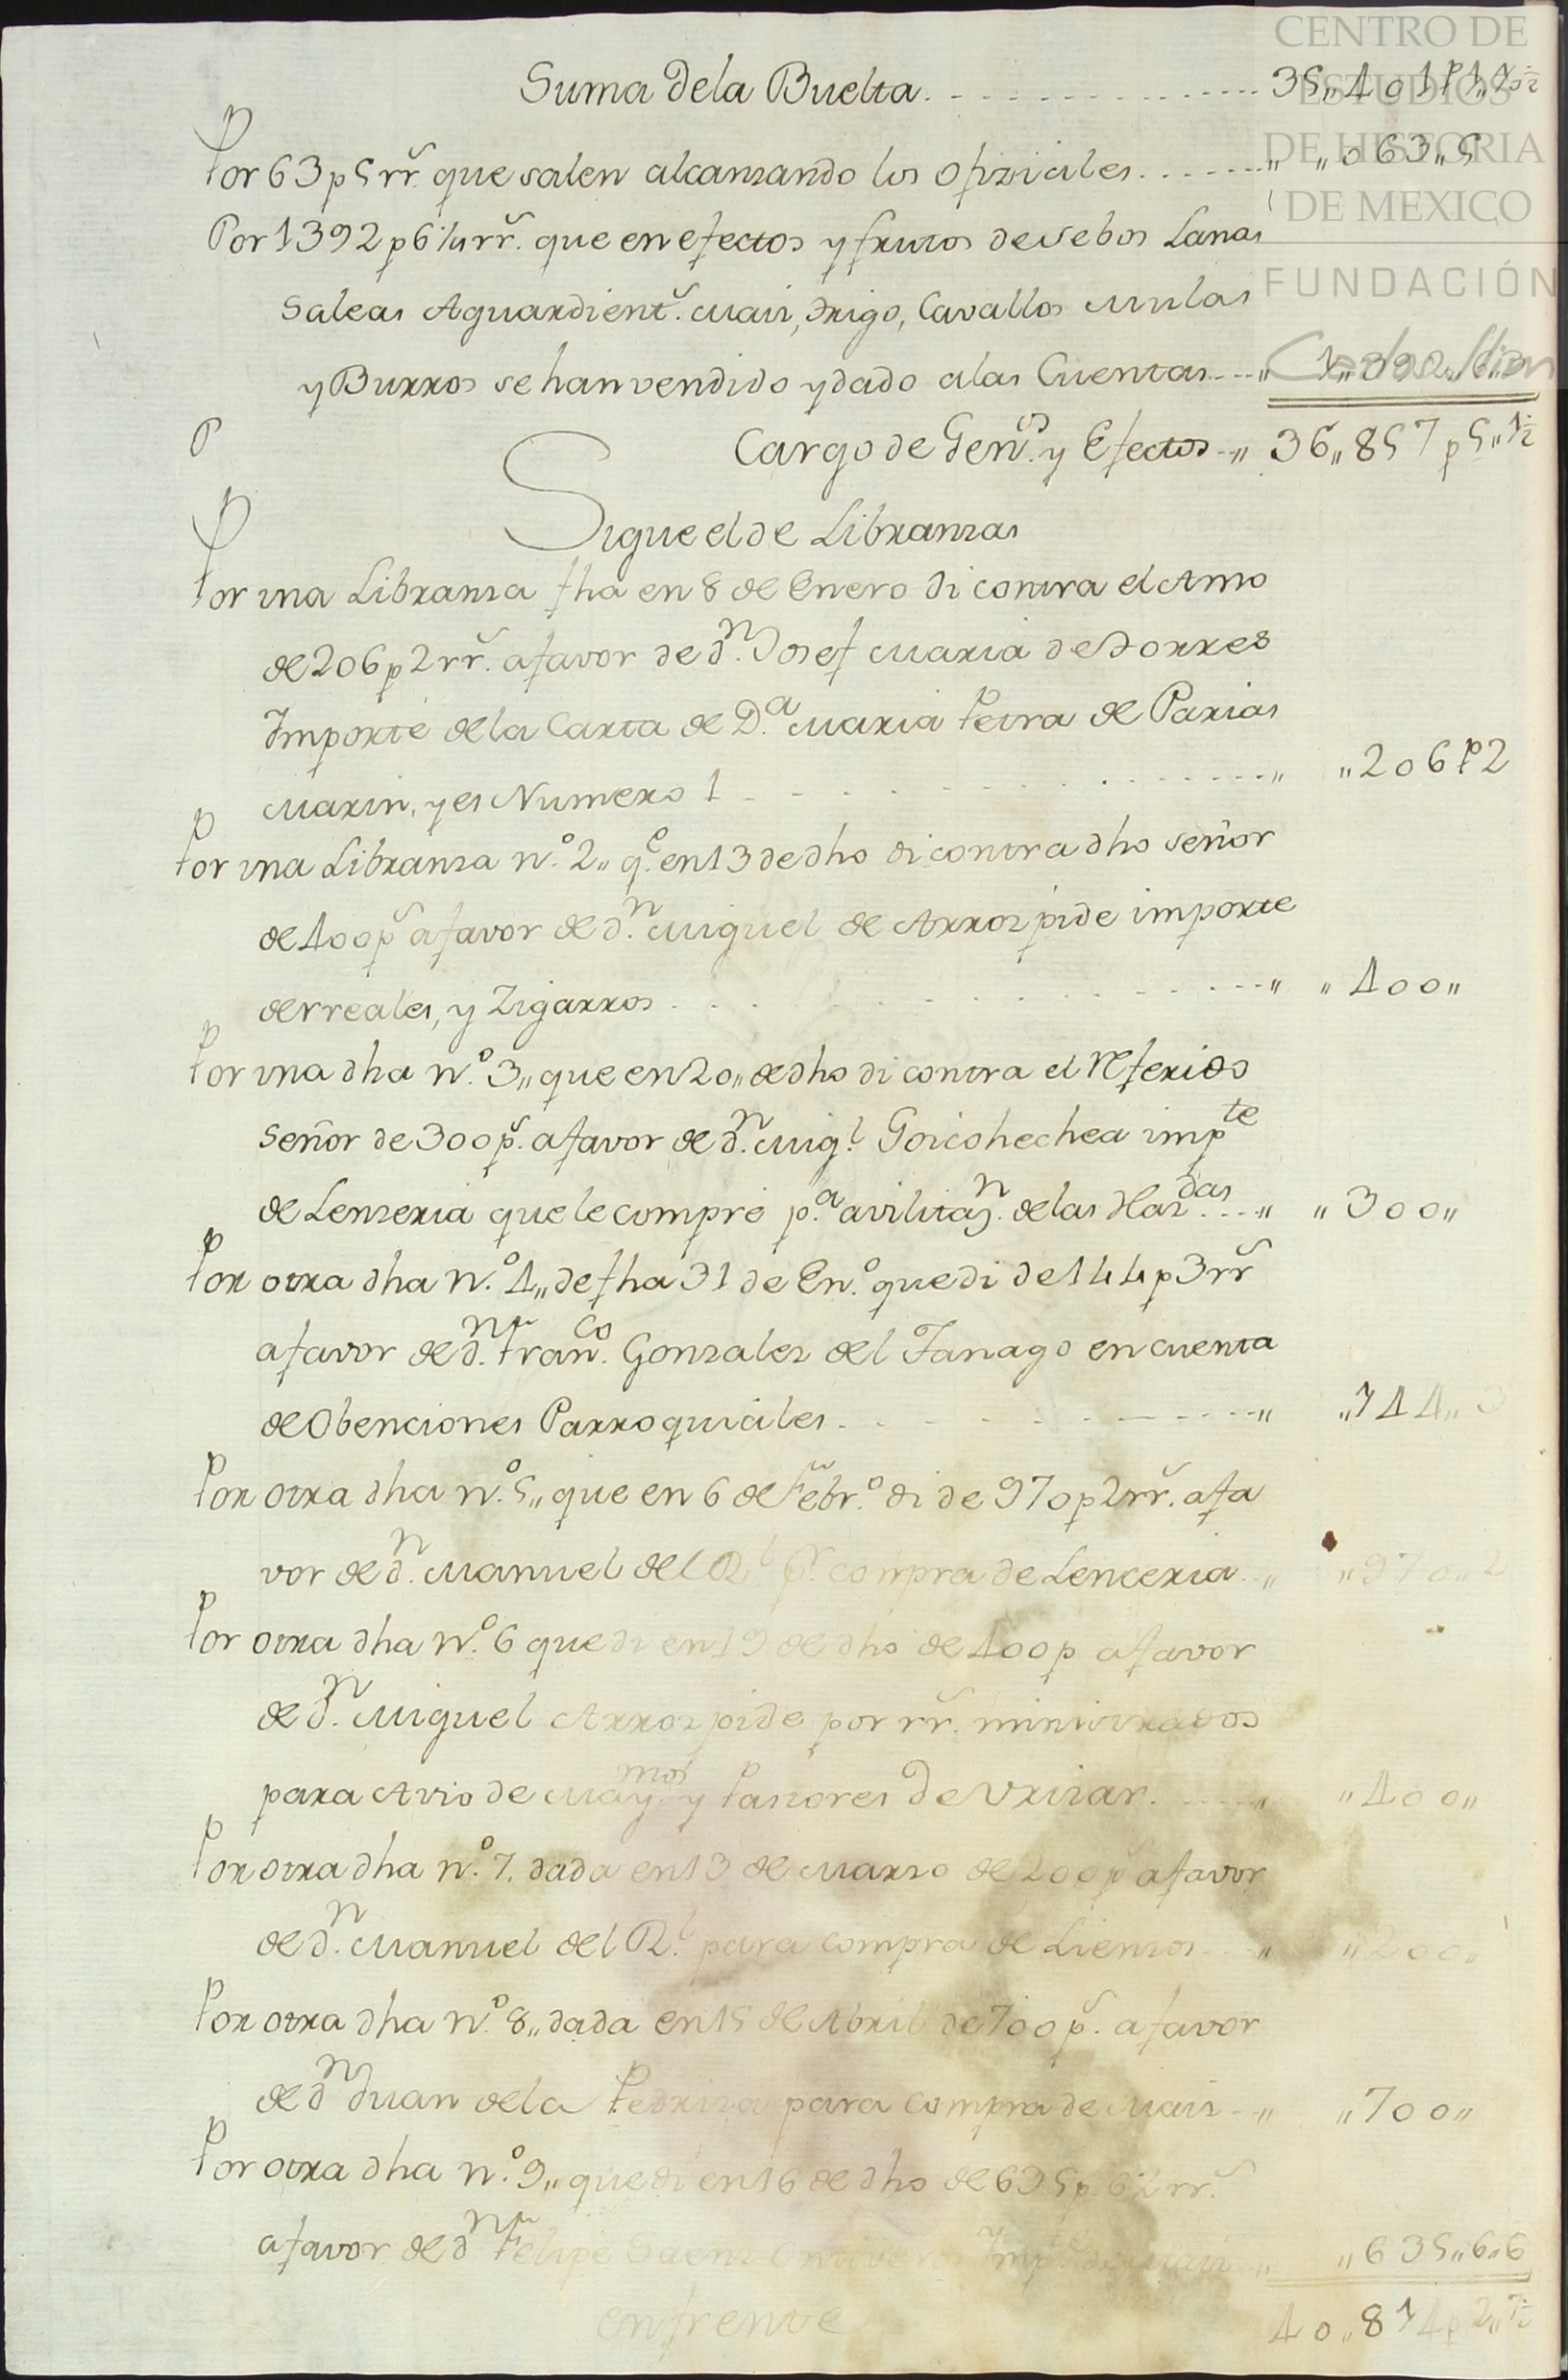 CENTRO DE
ESTUDIOS
DE HISTORIA
DE MEXICO
FUNDACIÓN
Suma dela Buelta. 35,,401p1,,
Por 63 p 5 rr.s que salen alcanzando los ofiziales ,,063,,5
Por 1392 p 6¼ rr.s que en efectos y frutos de sebos Lanas
Saleas Aguardient.s Maiz, trigo, Cavallos Mulas
y Burros se han vendido y dado alas Cuentas 1,,392,,6,,3
Cargo de Gen.os y Efectos ,, 36,,857 p 5,,1½
Sigue el de Libranzas
Por una Libranza fha en 8 de Enero di contra el Amo
de 206 p 2 rr.s a favor de d.n Josef Maria de Torres
Importe de la Carta de D.a Maria Petra de Parias
Marin, y es Numero 1 ,, ,,206p2
Por una Libranza n.o 2,, q.e en 13 de dho di contra dho señor
de 400 p.s a favor de d.n Miguel de Arrozpide importe
de rreales, y Zigarros ,, ,,400,,
Por una dha n.o 3,, que en 20,, de dho di contra el referido
Señor de 300 p.s a favor de d.n Mig.l Goicohechea imp.te
de Lenzeria que le compré p.a avilitaz.n de las Haz.das ,, ,,300,,
Por otra dha n.o 4,, de fha 31 de En.o que di de 144 p 3 rr.s
a favor de d.n Fran.co Gonzalez del Tanago en cuenta
de Obenciones Parroquiales ,, ,,144,,3
Por otra dha n.o 5,, que en 6 de Febr.o di de 970 p 2 rr.s a fa
vor de d.n Manuel del R.l p.r compra de Lenceria ,, ,,970,,2
Por otra dha n.o 6 que di en 19 de dho de 400 p a favor
de d.n Miguel Arrozpide por rr.s ministrados
para Avio de May.mos y Pastores de Vrizar. ,, ,,400,,
Por otra dha n.o 7. dada en 13 de Marzo de 200 p.s a favor
de d.n Manuel del R.l para compra de Lienzos ,, ,,200,,
Por otra dha n.o 8,, dada en 15 de Abril de 700 p.s a favor
de d.n Juan de la Pedriza para compra de Maiz ,, ,,700,,
Por otra dha n.o 9,, que di en 16 de dho de 635 p 6½ rr.s
a favor de d.n Felipe Saenz Imp.te de Maiz ,, ,,635,,6,,6
enfrente 40,,814p2,,7½